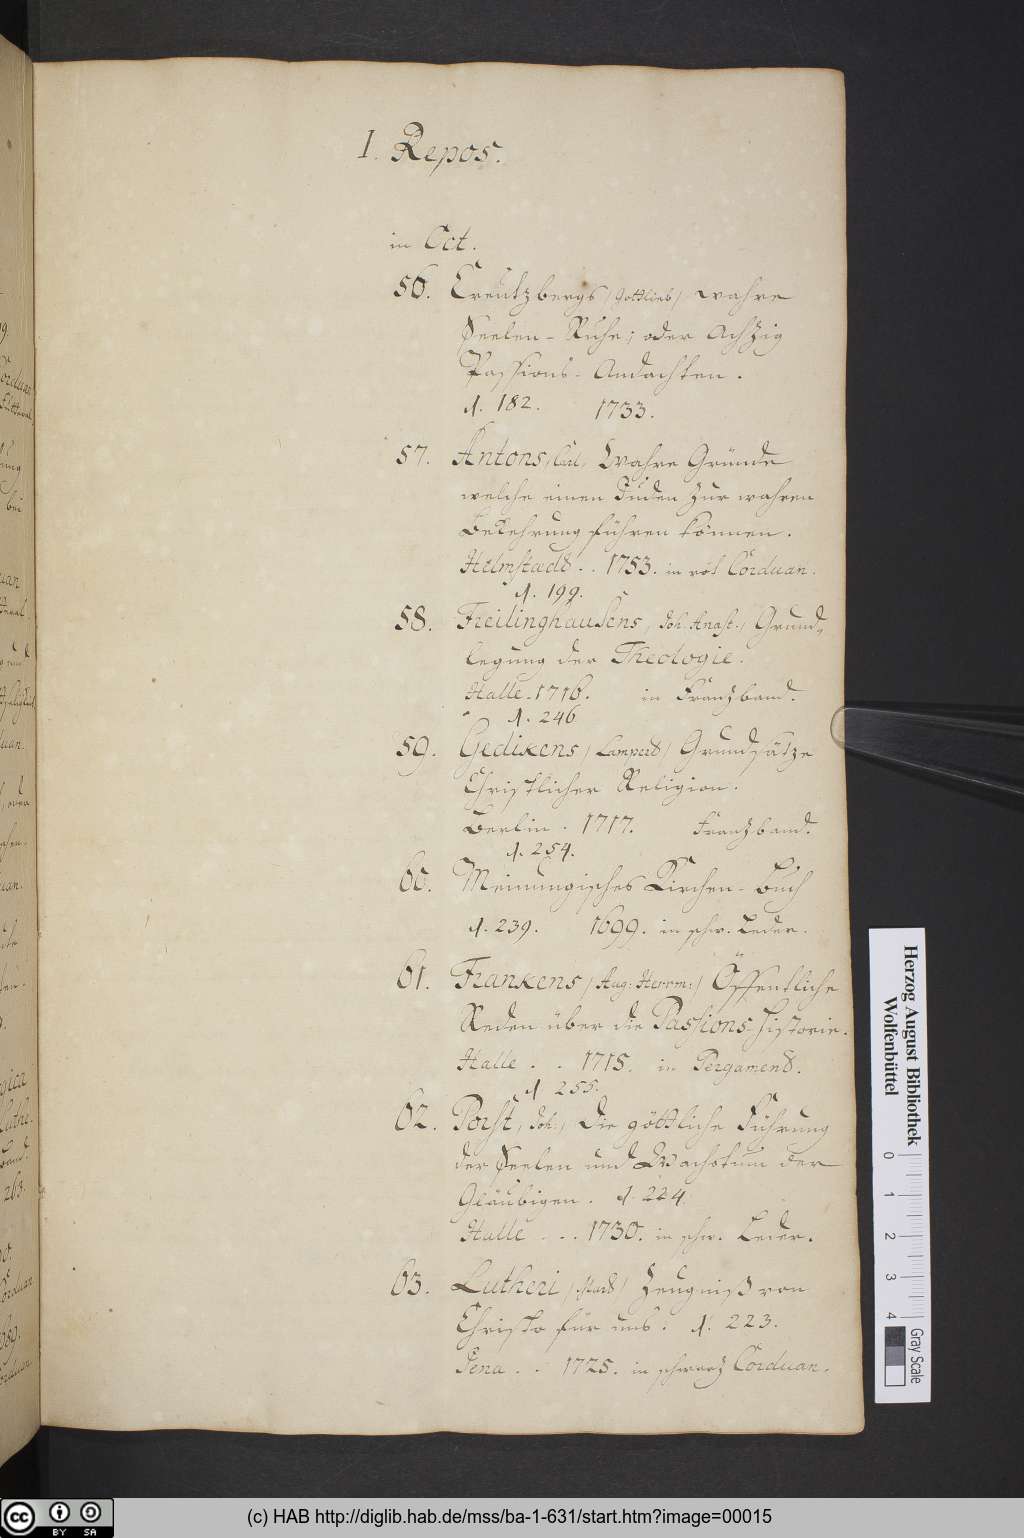 I. Repos.
in Oct.
56. Creutzbergs (Gottlieb) wahre
Seelen-Ruhe; oder Achzig
Passions-Andachten.
N. 182. 1733.
57. Antons, Carl, Wahre Gründe
welche einen Juden zur wahren
Bekehrung führen können.
Helmstaedt .. 1753. in rot Corduan.
N. 199.
58. Freilinghausens, Joh. Anast., Grund-
legung der Theologie.
Halle. 1716. in Franzband.
N. 246
59. Gedikens, Lampert, Grundsätze
Christlicher Religion.
Berlin. 1717. Franzband.
N. 254.
60. Meinungisches Kirchen-Buch
N. 239. 1699. in schw. Leder.
61. Frankens, Aug: Herrm:, Öffentliche
Reden über die Passions-Historie.
Halle . . 1715. in Pergament.
N. 255.
62. Porst, Joh:, Die göttliche Führung
der Seelen und Wachstum der
Gläubigen. N. 224.
Halle . . . 1730. in schw. Leder.
63. Lutheri, Mart, Zeugniß von
Christo für uns. N. 223.
Jena . . 1725. in schwarz Corduan.
Herzog August Bibliothek
Wolfenbüttel
0 1 2 3 4
Gray Scale
cc BY SA
(c) HAB http://diglib.hab.de/mss/ba-1-631/start.htm?image=00015